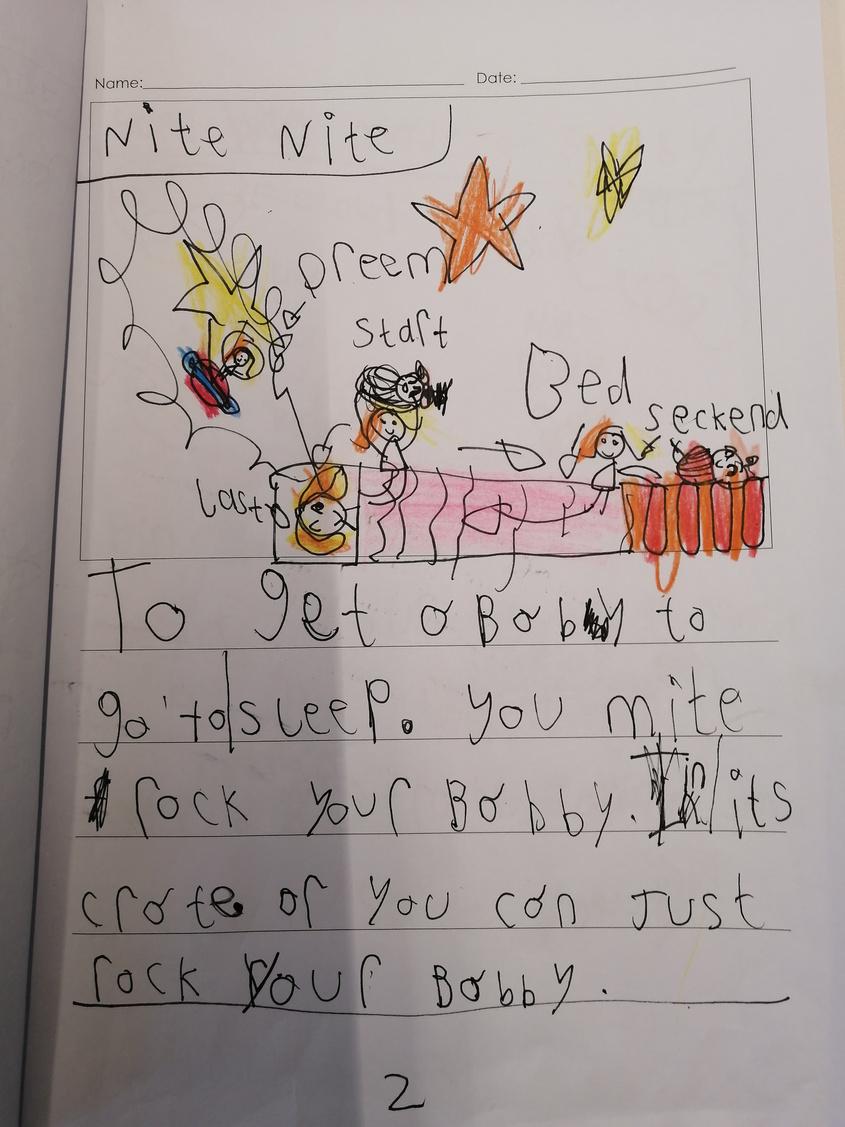 Name: Date:
Nite Nite
Dreem
start
Bed
seckend
Last
To get a Bobby to
go to sleep. You mite
rock your Bobby. In its
crate or you can Just
rock Your Bobby.
2